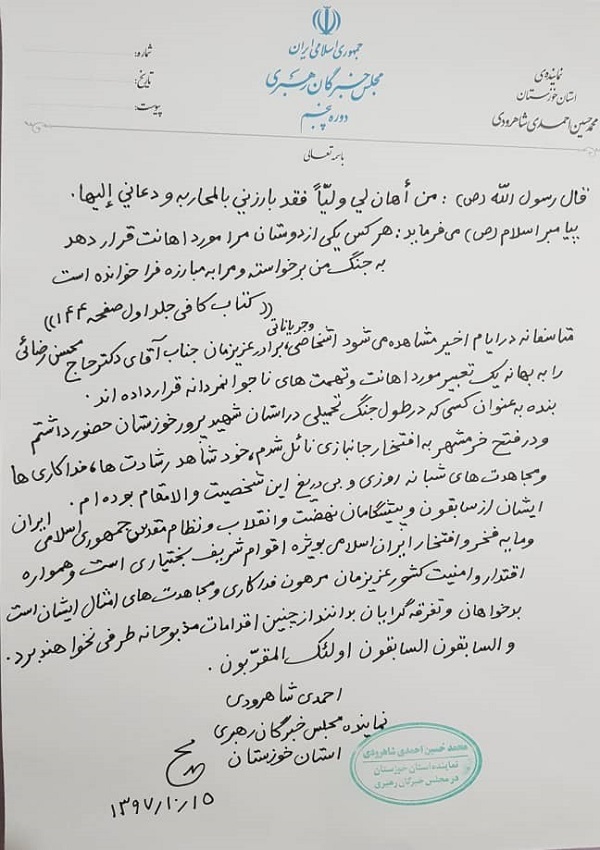 جمهوری اسلامی ایران
مجلس خبرگان رهبری
دوره پنجم
نمایندهی
استان خوزستان
محمدحسین احمدی شاهرودی
شماره:
تاریخ:
پیوست:
باسمه تعالی
قال رسول الله (ص) : من أهان لي وليّاً فقد بارزني بالمحاربه و دعاني إليها .
پیامبر اسلام (ص) می‌فرماید : هر کس یکی از دوستان مرا مورد اهانت قرار دهد
به جنگ من برخواسته و مرا به مبارزه فرا خوانده است
(( کتاب کافی جلد اول صفحه ۱۴۴ ))
متاسفانه در ایام اخیر مشاهده می شود اشخاصی وجریاناتی ، برادر عزیزمان جناب آقای دکتر حاج محسن رضائی
را به بهانه یک تعبیر مورد اهانت و تهمت های ناجوانمردانه قرار داده اند .
بنده به عنوان کسی که در طول جنگ تحمیلی در استان شهید پرور خوزستان حضور داشتم
و در فتح خرمشهر به افتخار جانبازی نائل شدم ، خود شاهد رشادت ها ، فداکاری ها
و مجاهدت های شبانه روزی و بی دریغ این شخصیت والامقام بوده ام .
ایشان از سابقون و پیشگامان نهضت و انقلاب و نظام مقدس جمهوری اسلامی ایران
و مایه فخر و افتخار ایران اسلامی بویژه اقوام شریف بختیاری است و همواره
اقتدار و امنیت کشور عزیزمان مرهون فداکاری و مجاهدت های امثال ایشان است
بدخواهان و تفرقه گرایان بدانند از چنین اقدامات مذبوحانه طرفی نخواهند برد .
و السابقون السابقون اولئک المقرّبون .
احمدی شاهرودی
نماینده مجلس خبرگان رهبری
استان خوزستان
۱۳۹۷/۱۰/۱۵
محمد حسین احمدی شاهرودی
نماینده استان خوزستان
در مجلس خبرگان رهبری